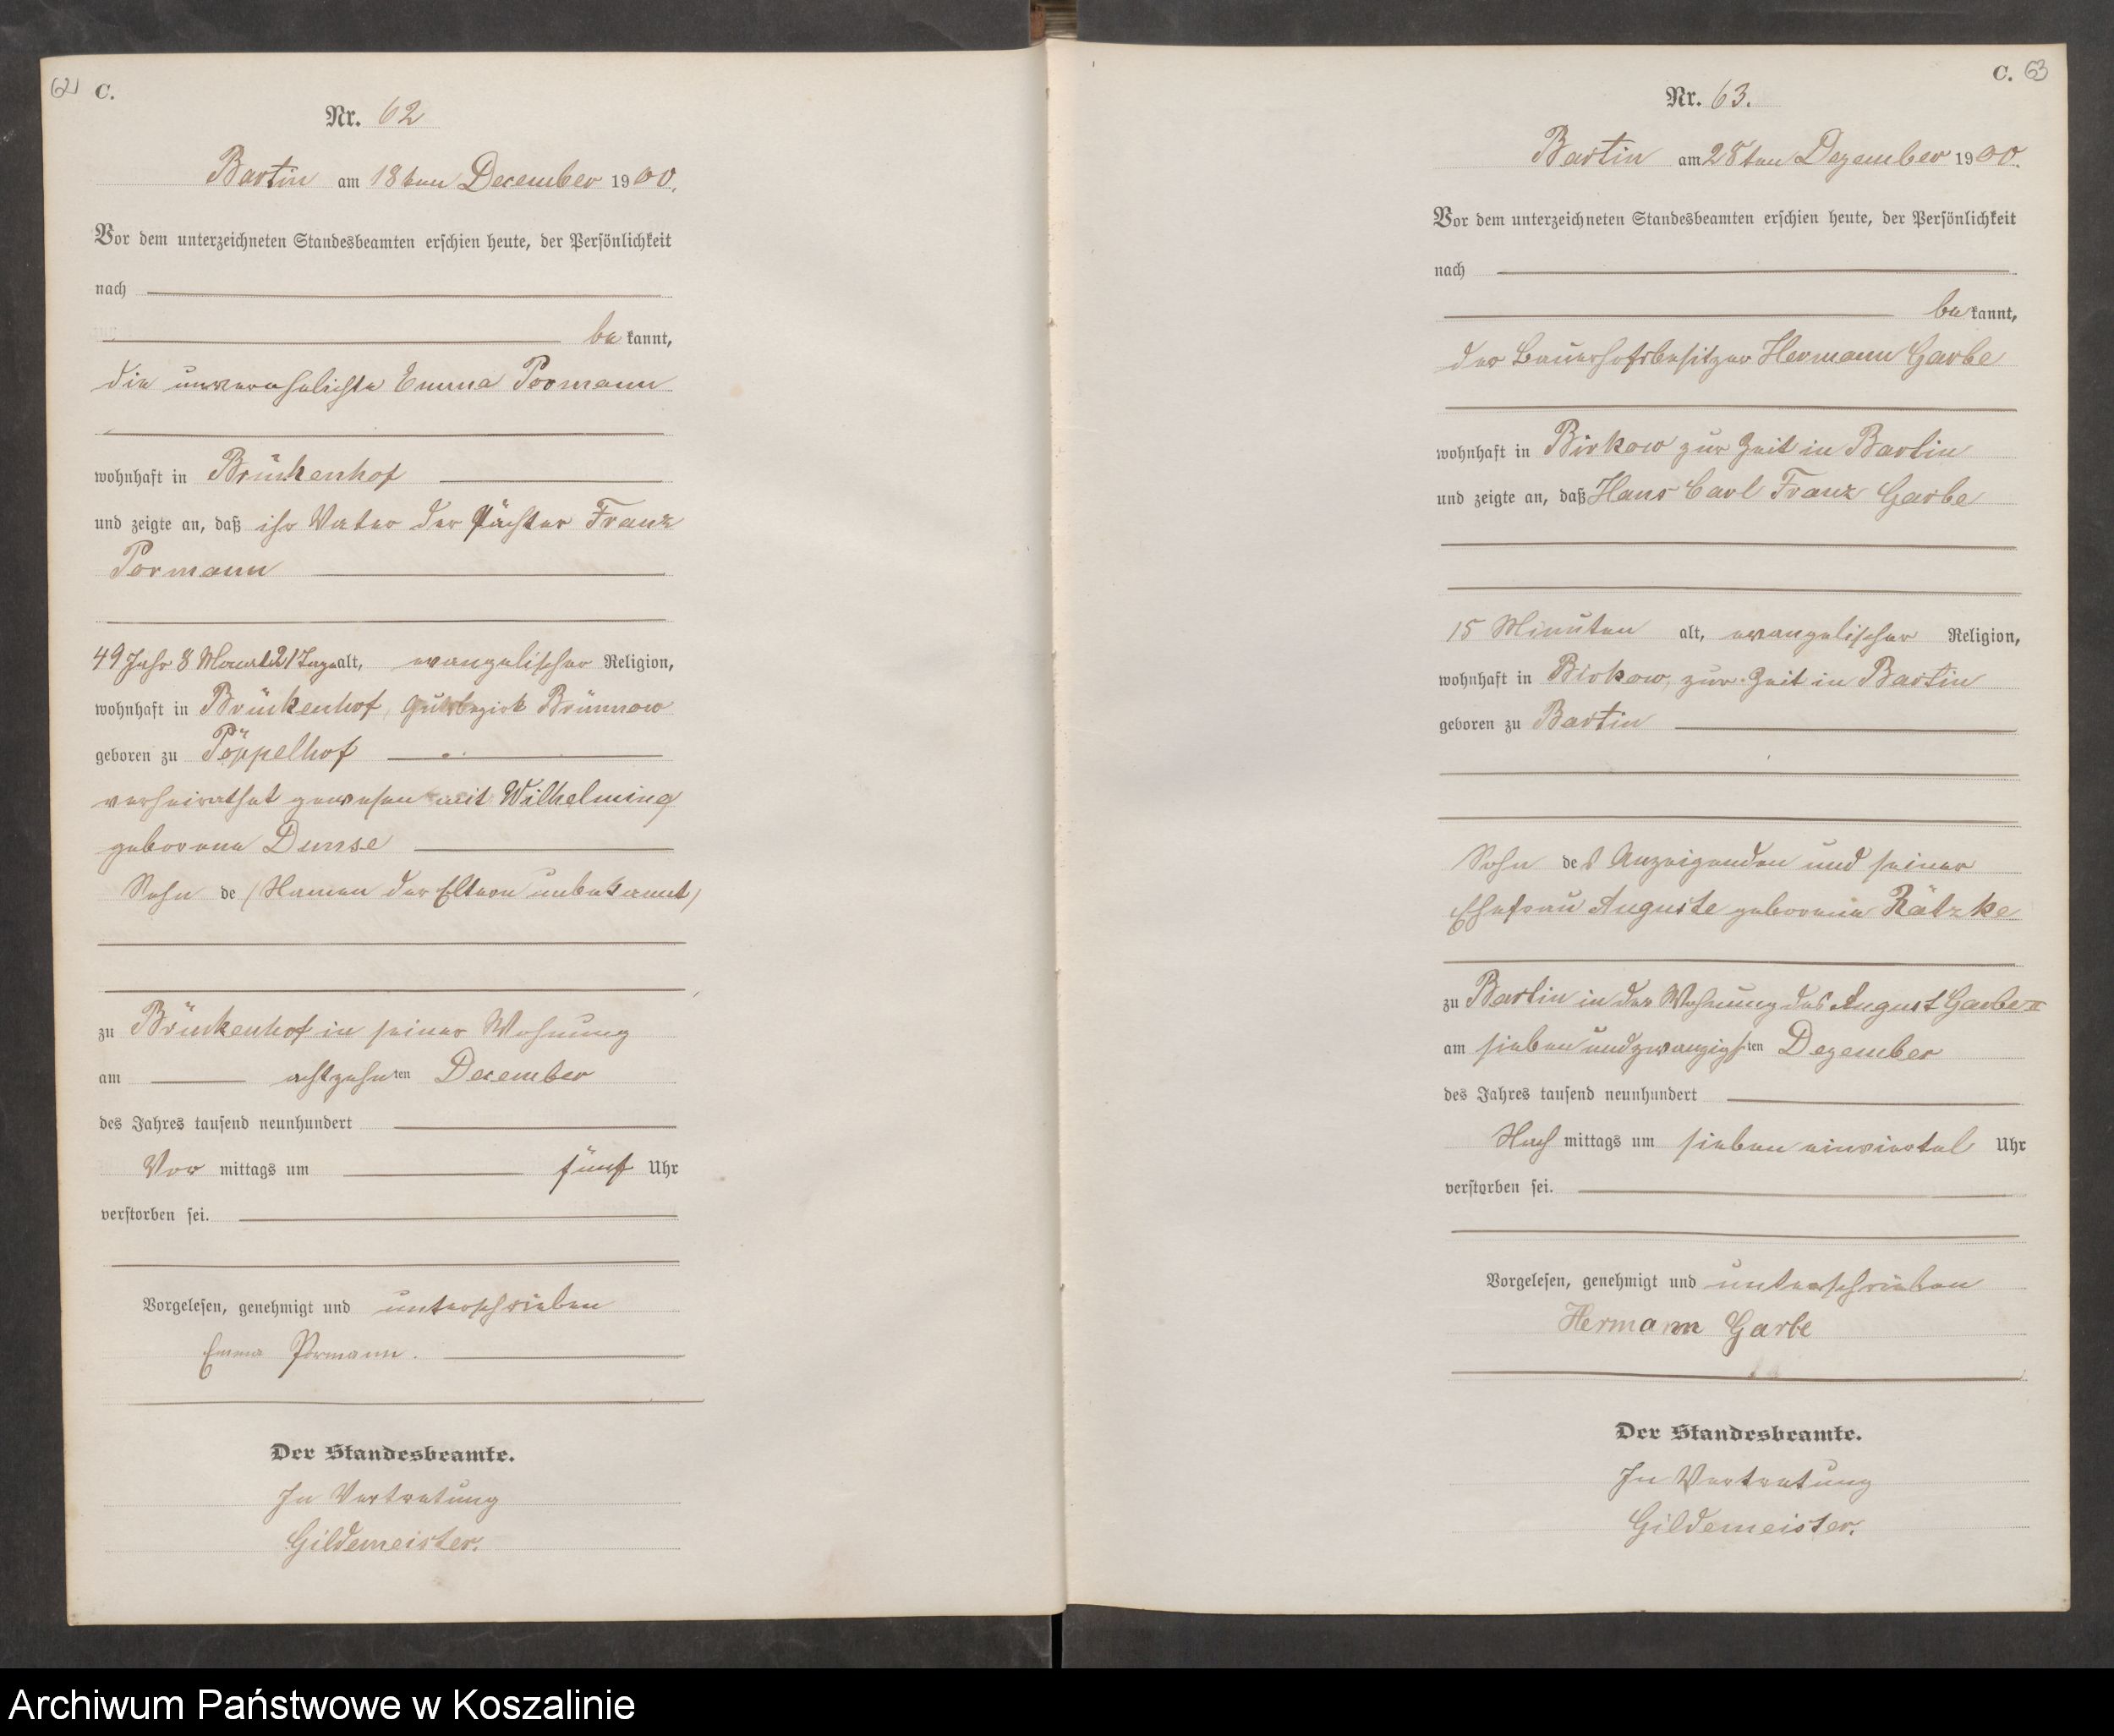 62 C.
Nr. 62
Bartin am 18ten December 1900.
Vor dem unterzeichneten Standesbeamten erschien heute, der Persönlichkeit
nach
be kannt,
die unverehelichte Emma Pormann
wohnhaft in Brünkenhof
und zeigte an, daß ihr Vater der Pächter Franz
Pormann
49 Jahr 8 Monate 21 Tage alt, evangelischer Religion,
wohnhaft in Brünkenhof, Gutsbezirk Brünnow
geboren zu Pöppelhof
verheirathet gewesen mit Wilhelmine
geborene Dunse
Sohn de (Namen der Eltern unbekannt)
zu Brünkenhof in seiner Wohnung
am achtzehnten December
des Jahres tausend neunhundert
Vor mittags um fünf Uhr
verstorben sei.
Vorgelesen, genehmigt und unterschrieben
Emma Pormann.
Der Standesbeamte.
In Vertretung
Gildemeister.
C. 63
Nr. 63.
Bartin am 28ten Dezember 1900.
Vor dem unterzeichneten Standesbeamten erschien heute, der Persönlichkeit
nach
be kannt,
der Bauerhofsbesitzer Hermann Garbe
wohnhaft in Birkow zur Zeit in Bartin
und zeigte an, daß Hans Carl Franz Garbe
15 Minuten alt, evangelischer Religion,
wohnhaft in Birkow, zur Zeit in Bartin
geboren zu Bartin
Sohn des Anzeigenden und seiner
Ehefrau Auguste geborene Rätzke
zu Bartin in der Wohnung des August Garbe II
am sieben und zwanzigsten Dezember
des Jahres tausend neunhundert
Nach mittags um sieben einviertel Uhr
verstorben sei.
Vorgelesen, genehmigt und unterschrieben
Hermann Garbe
Der Standesbeamte.
In Vertretung
Gildemeister.
Archiwum Państwowe w Koszalinie